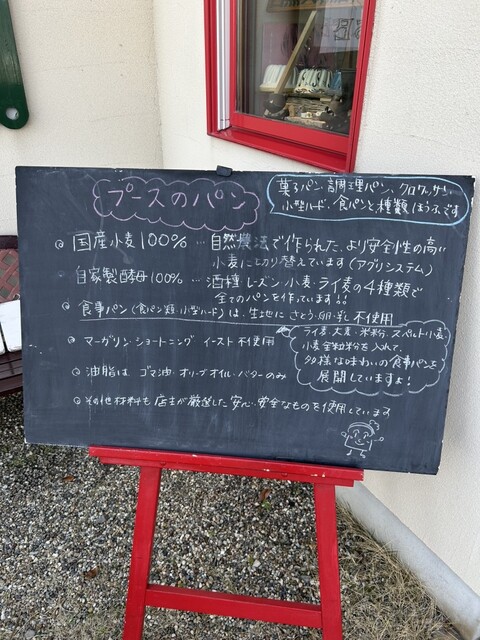 プースのパン
菓子パン、調理パン、クロワッサン、
小型ハード、食パンと種類ほうふです
国産小麦100% … 自然農法で作られた、より安全性の高い
小麦に切り替えています(アグリシステム)
自家製酵母100% … 酒種・レーズン・小麦・ライ麦の4種類で
全てのパンを作っています!!
食事パン(食パン類・小型ハード)は、生地に さとう・卵・乳 不使用
ライ麦、大麦・米粉、スペルト小麦、
小麦全粒粉を入れて、
多様な味わいの食事パンを
展開していますよ!
マーガリン・ショートニング イースト不使用
油脂は ゴマ油・オリーブオイル・バターのみ
その他材料も 店主が厳選した 安心・安全なものを使用しています